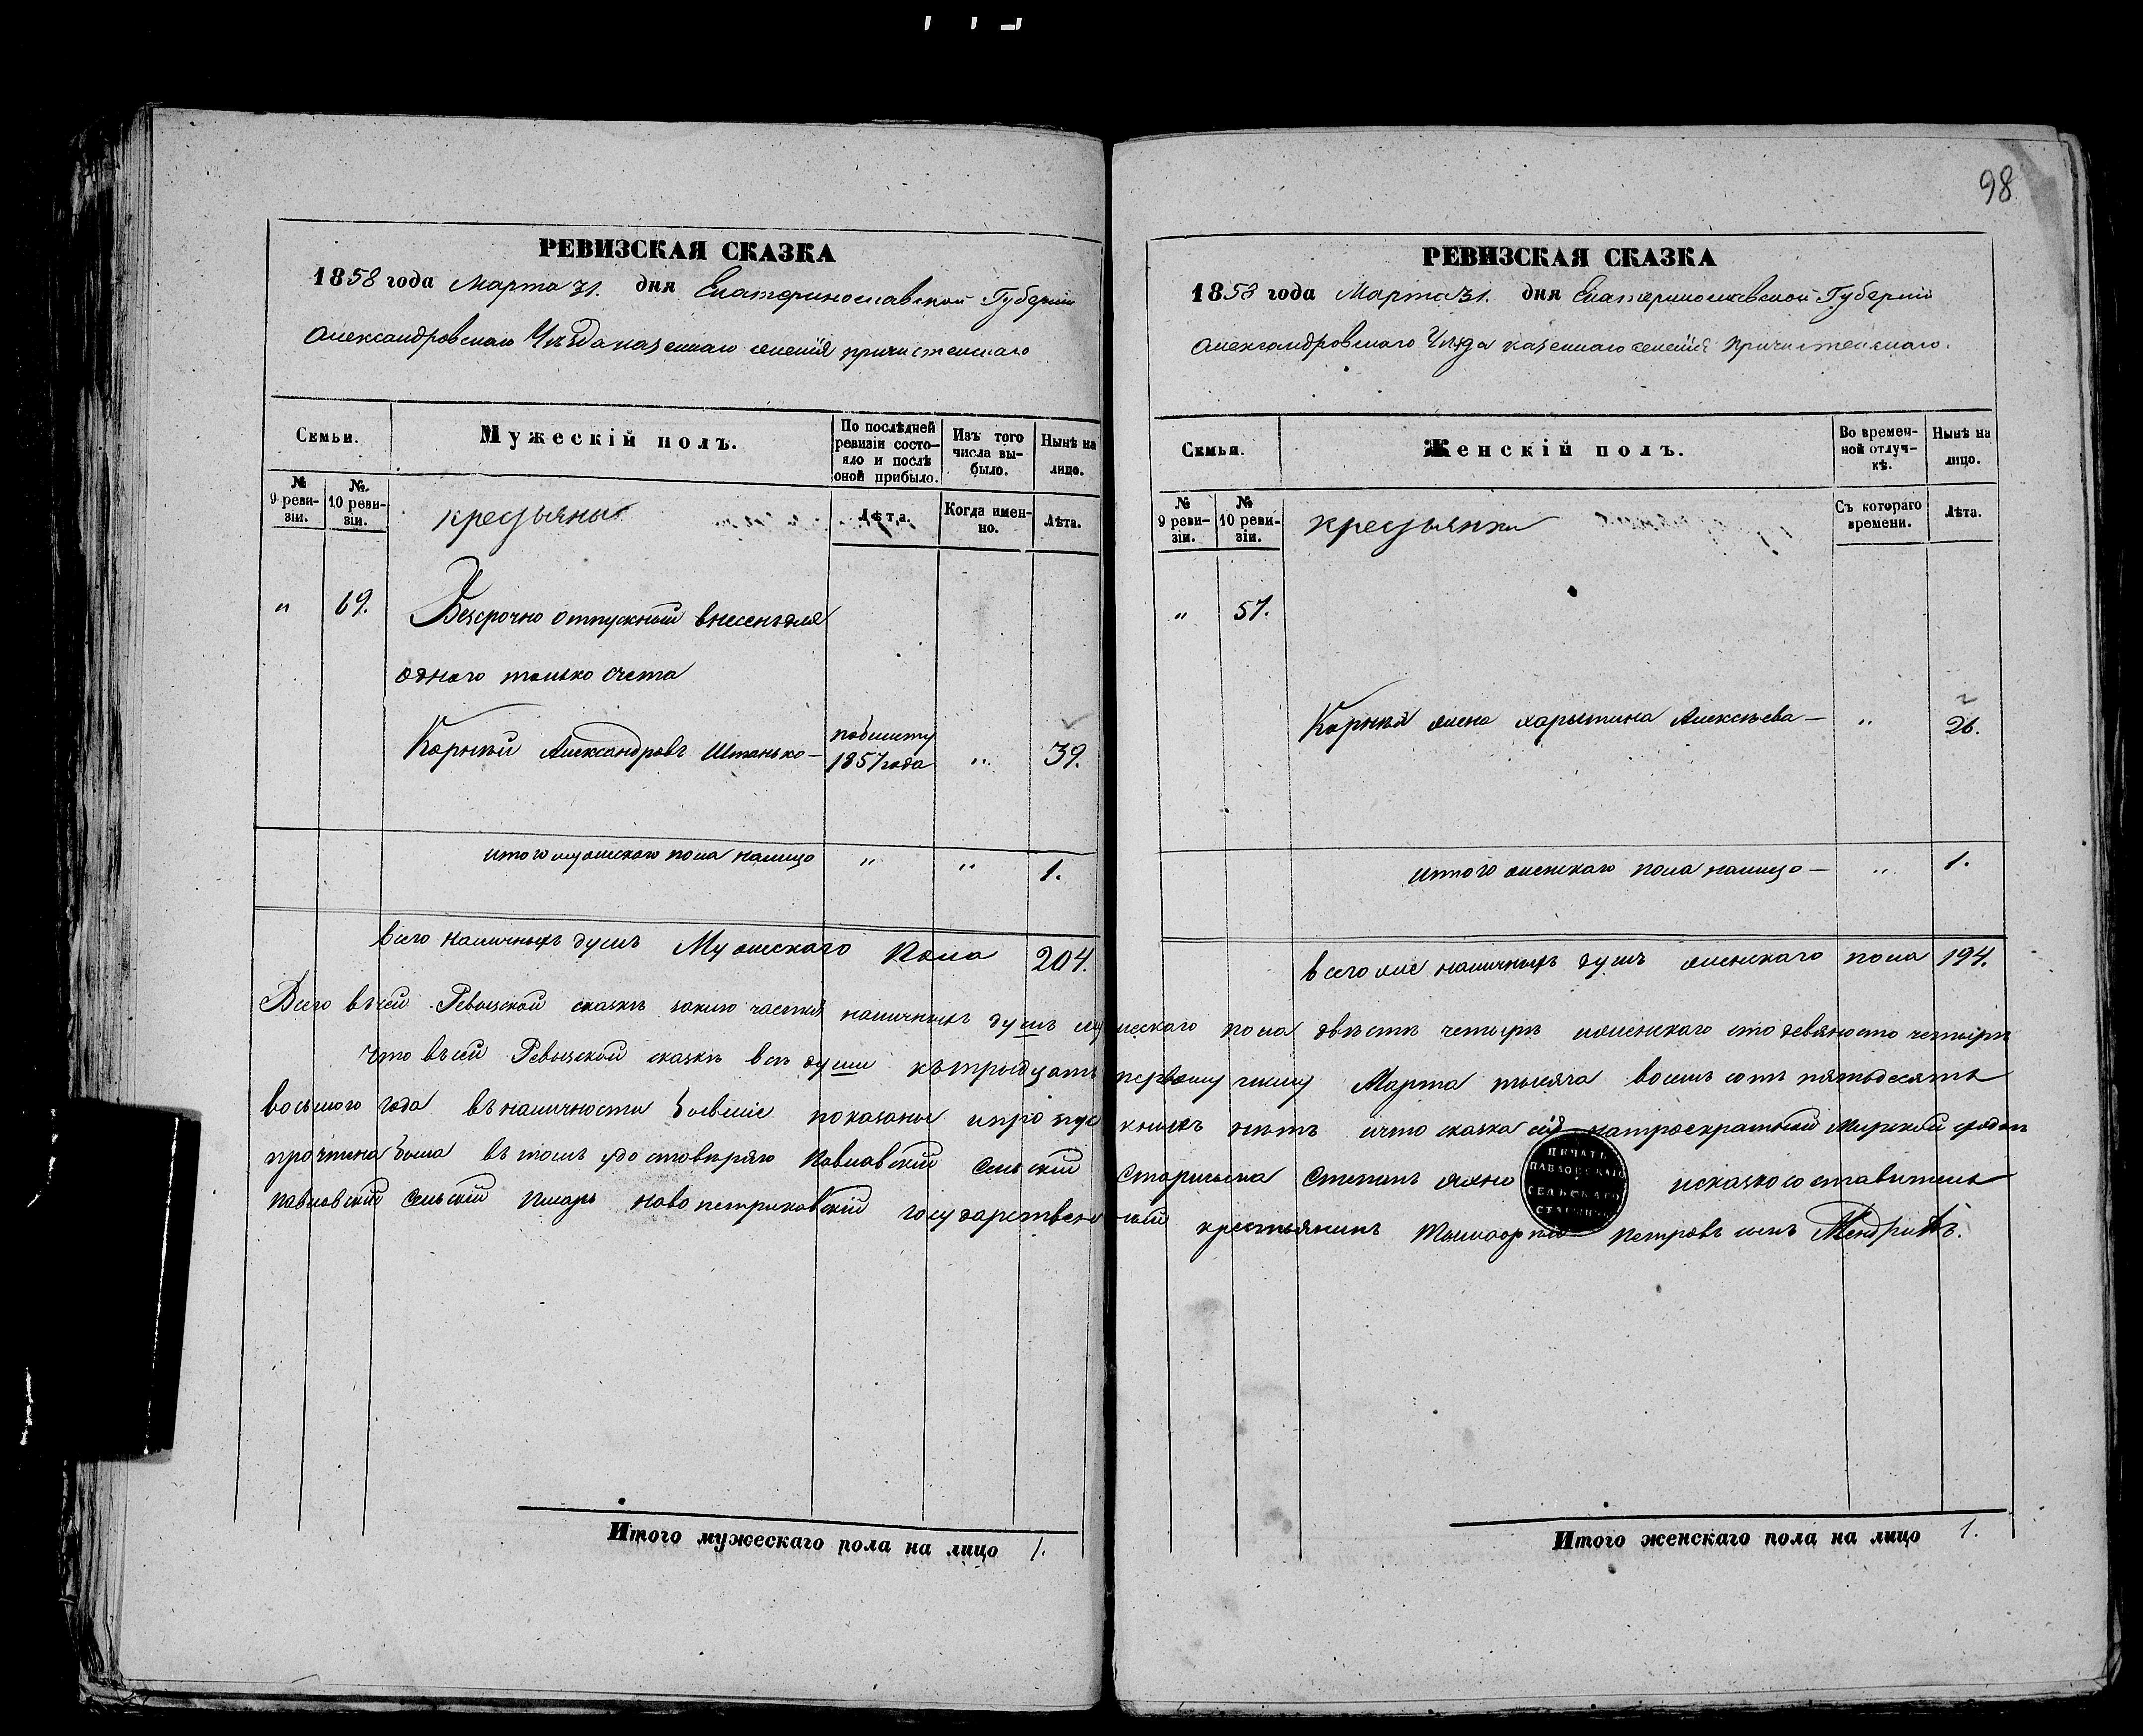 98
РЕВИЗСКАЯ СКАЗКА
1858 года Марта 31. дня Екатеринославской Губерніи
Александровскаго Уѣзда казеннаго селенія Причистенскаго
Семьи.
Мужескій полъ.
По послѣдней ревизіи состо-
яло и послѣ оной прибыло.
Изъ того числа вы-
было.
Нынѣ на лицо.
№ 9 реви-
зіи.
№. 10 реви-
зіи.
крестьяны
Лѣта.
Когда имен-
но.
Лѣта.
" 69. Безсрочно отпускной внесенъ для
одного только счета
Корній Александровъ Штанько — по билету 1857 года " 39.
итого мужескаго пола налицо " " 1.
всего наличныхъ душъ Мужескаго Пола 204.
РЕВИЗСКАЯ СКАЗКА
1858 года Марта 31. дня Екатеринославской Губерніи
Александровскаго Уѣзда казеннаго селенія Причистенскаго.
Семьи.
Женскій полъ.
Во времен-
ной отлуч-
кѣ.
Нынѣ на лицо.
№ 9 реви-
зіи.
№ 10 реви-
зіи.
крестьянки
Съ котораго времени.
Лѣта.
" 57.
Корнія жена Харытина Алексѣева — " 26.
итого женскаго пола налицо — " 1.
всего же наличныхъ душъ женскаго пола 194.
Всего въ сей Ревызской сказкѣ наличныхъ душъ мужескаго пола двѣстѣ четырѣ и женскаго сто девяносто четырѣ
Что въ сей Ревызской сказкѣ всѣ души къ трыдцать первому числу Марта тысяча восемь сотъ пятьдесятъ
восьмого года въ наличности бывшіе показаны и пропускныхъ нѣтъ и что сказка сія на троекратный мирской сходкѣ
прочтена была въ томъ удостовѣряю Павловскій Сельскій Старшына Степанъ и сказкосоставитель
Павловскій Сельскій Писарь Новопетриковскій государственный крестьянинъ Петровъ сынъ
ПЕЧАТЬ
ПАВЛОВСКАГО
СЕЛЬСКАГО
СТАРШИНЫ
Итого мужескаго пола на лицо 1.
Итого женскаго пола на лицо 1.